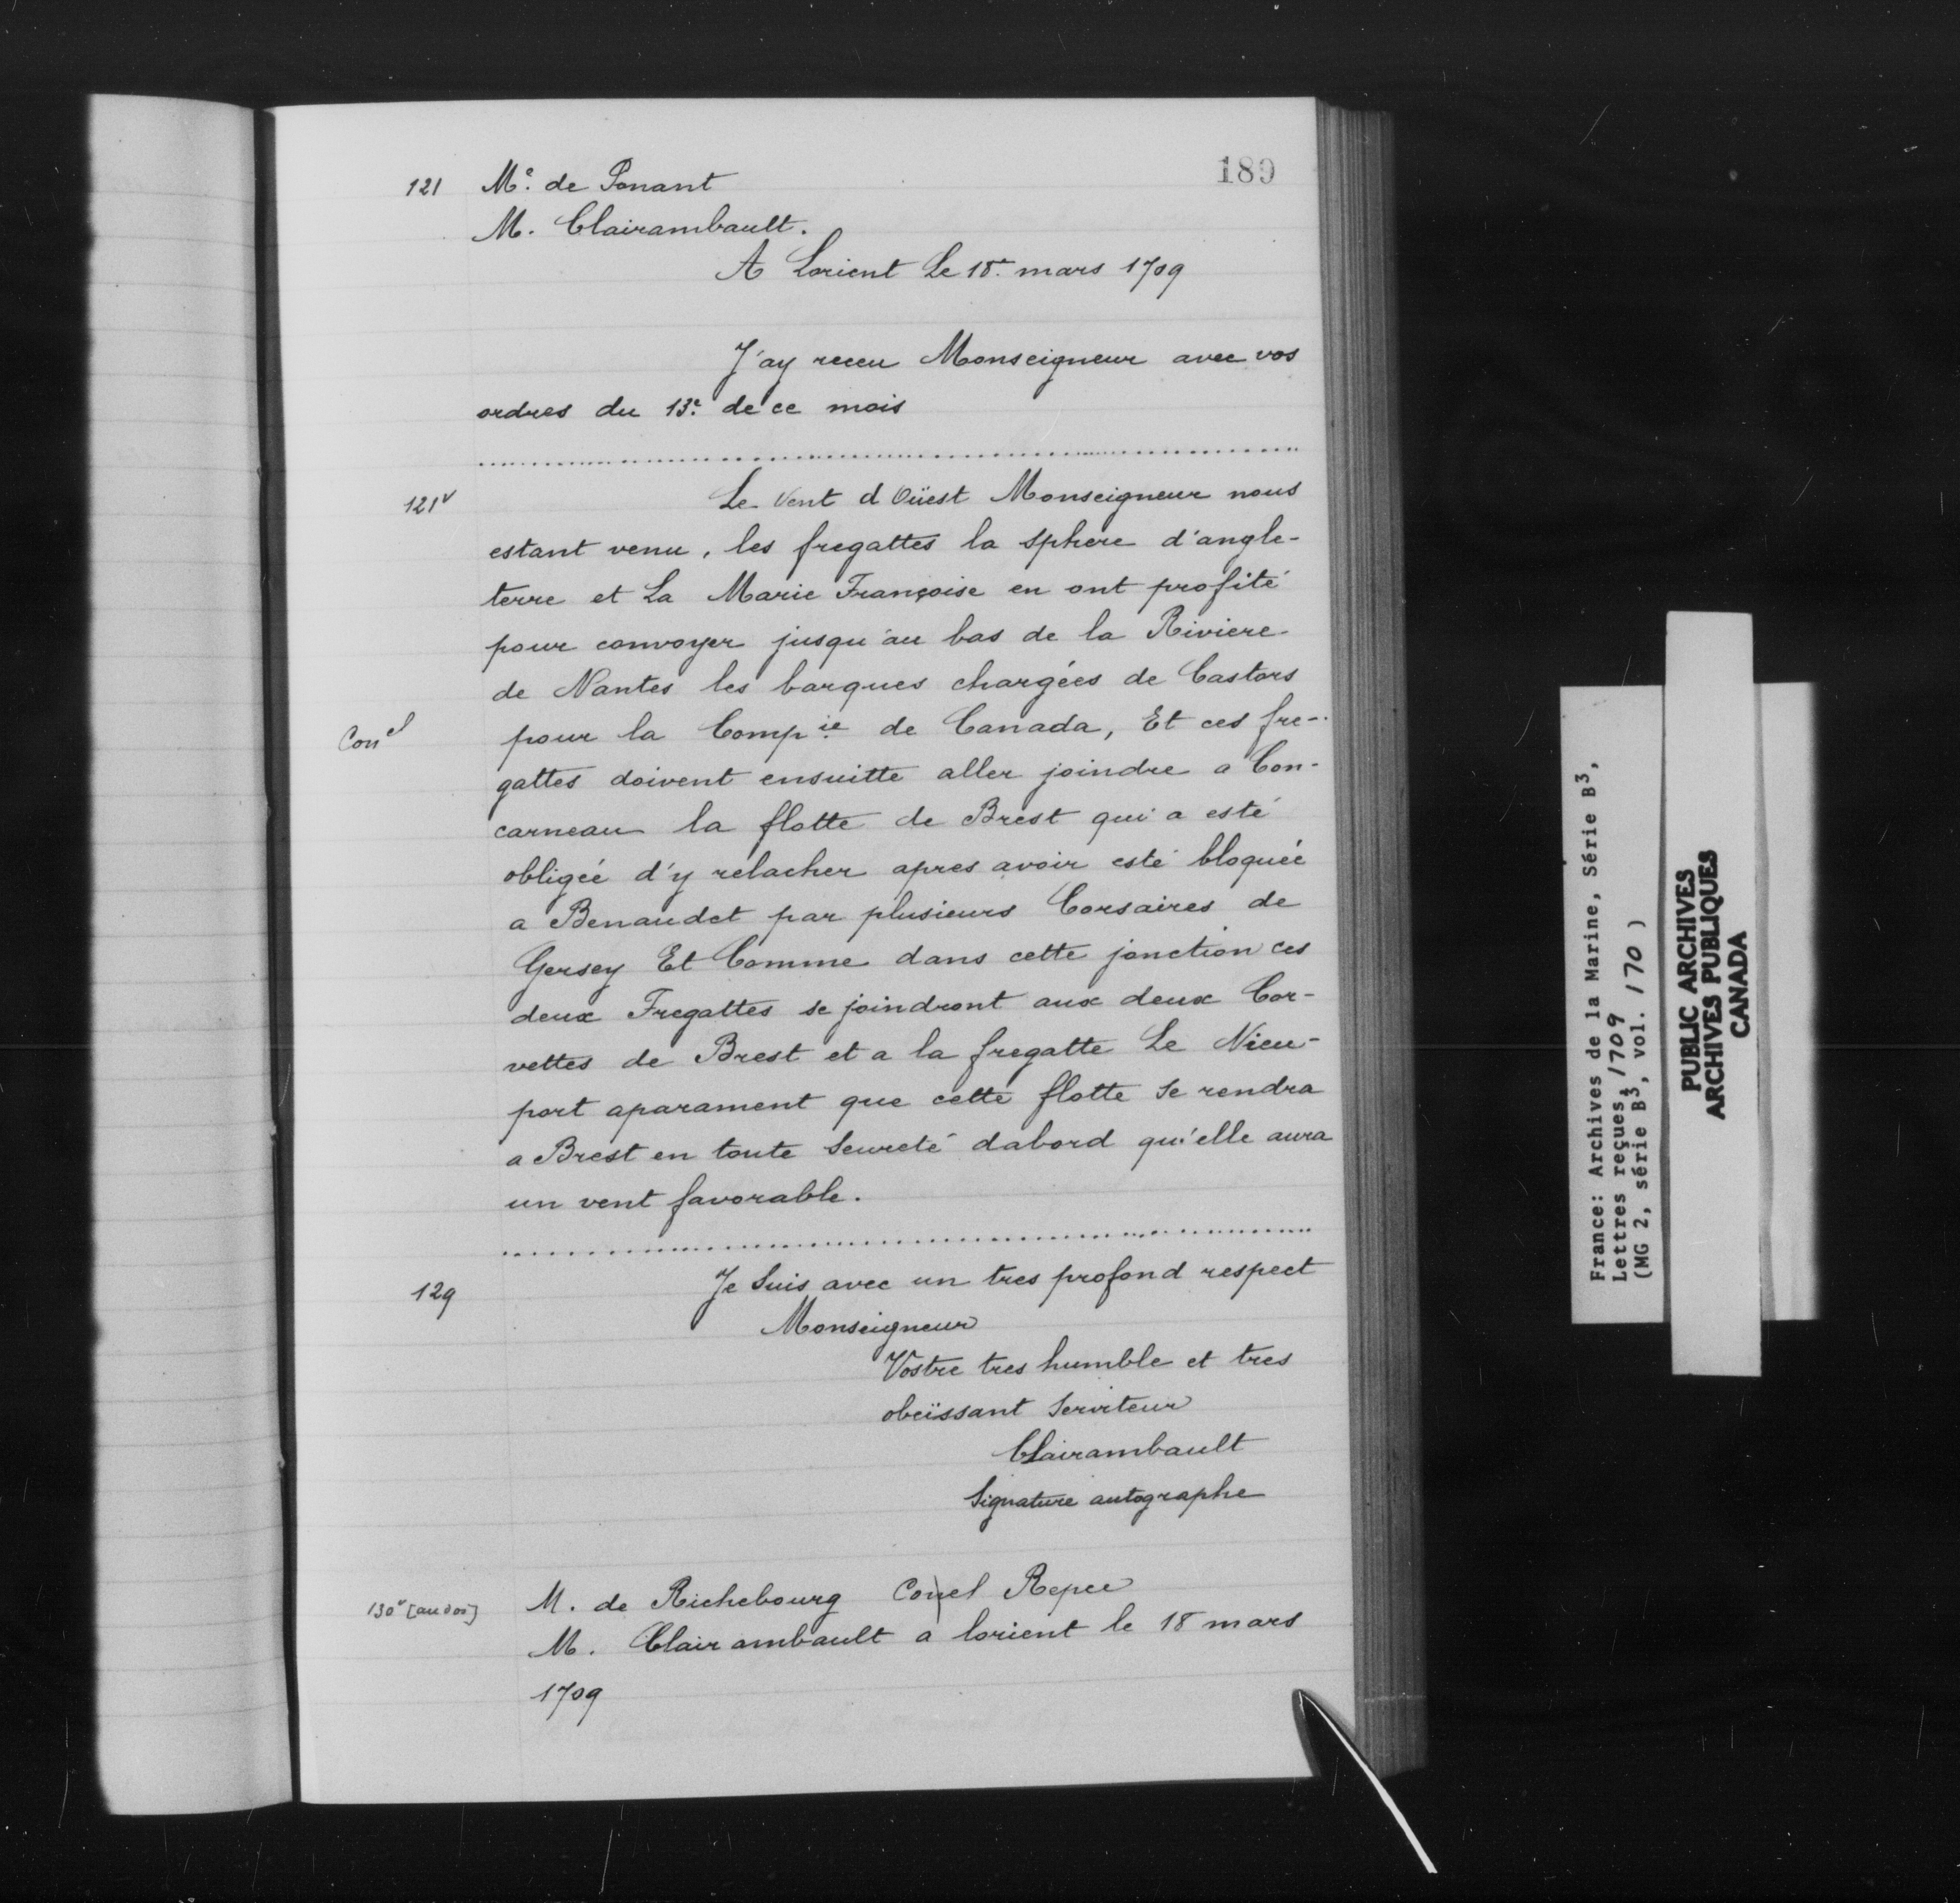 189
121 Mᵉ. de Ponant
M. Clairambault.
A Lorient Le 18ᵉ. mars 1709
J'ay receu Monseigneur avec vos
ordres du 13ᵉ. de ce mois
121ᵛ Le Vent d Oüest Monseigneur nous
estant venu, les fregattes la sphere d'angle-
terre et La Marie Françoise en ont profité
pour convoyer jusqu'au bas de la Riviere
de Nantes les barques chargées de Castors
Conᵉˡ pour la Compⁱᵉ. de Canada, Et ces fre-
gattes doivent ensuitte aller joindre a Con-
carneau la flotte de Brest qui a esté
obligée d'y relacher apres avoir esté bloquée
a Benaudet par plusieurs Corsaires de
Gersey Et Comme dans cette jonction ces
deux Fregattes se joindront aux deux Cor-
vettes de Brest et a la fregatte Le Nieu-
port aparament que cette flotte se rendra
a Brest en toute seureté dabord qu'elle aura
un vent favorable.
129 Je suis avec un tres profond respect
Monseigneur
Vostre tres humble et tres
obeïssant serviteur
Clairambault
Signature autographe
130ᵛ [au dos] M. de Richebourg Conel Repce
M. Clairambault a lorient le 18 mars
1709
France: Archives de la Marine, Série B3,
Lettres reçues, 1709
(MG 2, série B3, vol. 170 )
PUBLIC ARCHIVES
ARCHIVES PUBLIQUES
CANADA